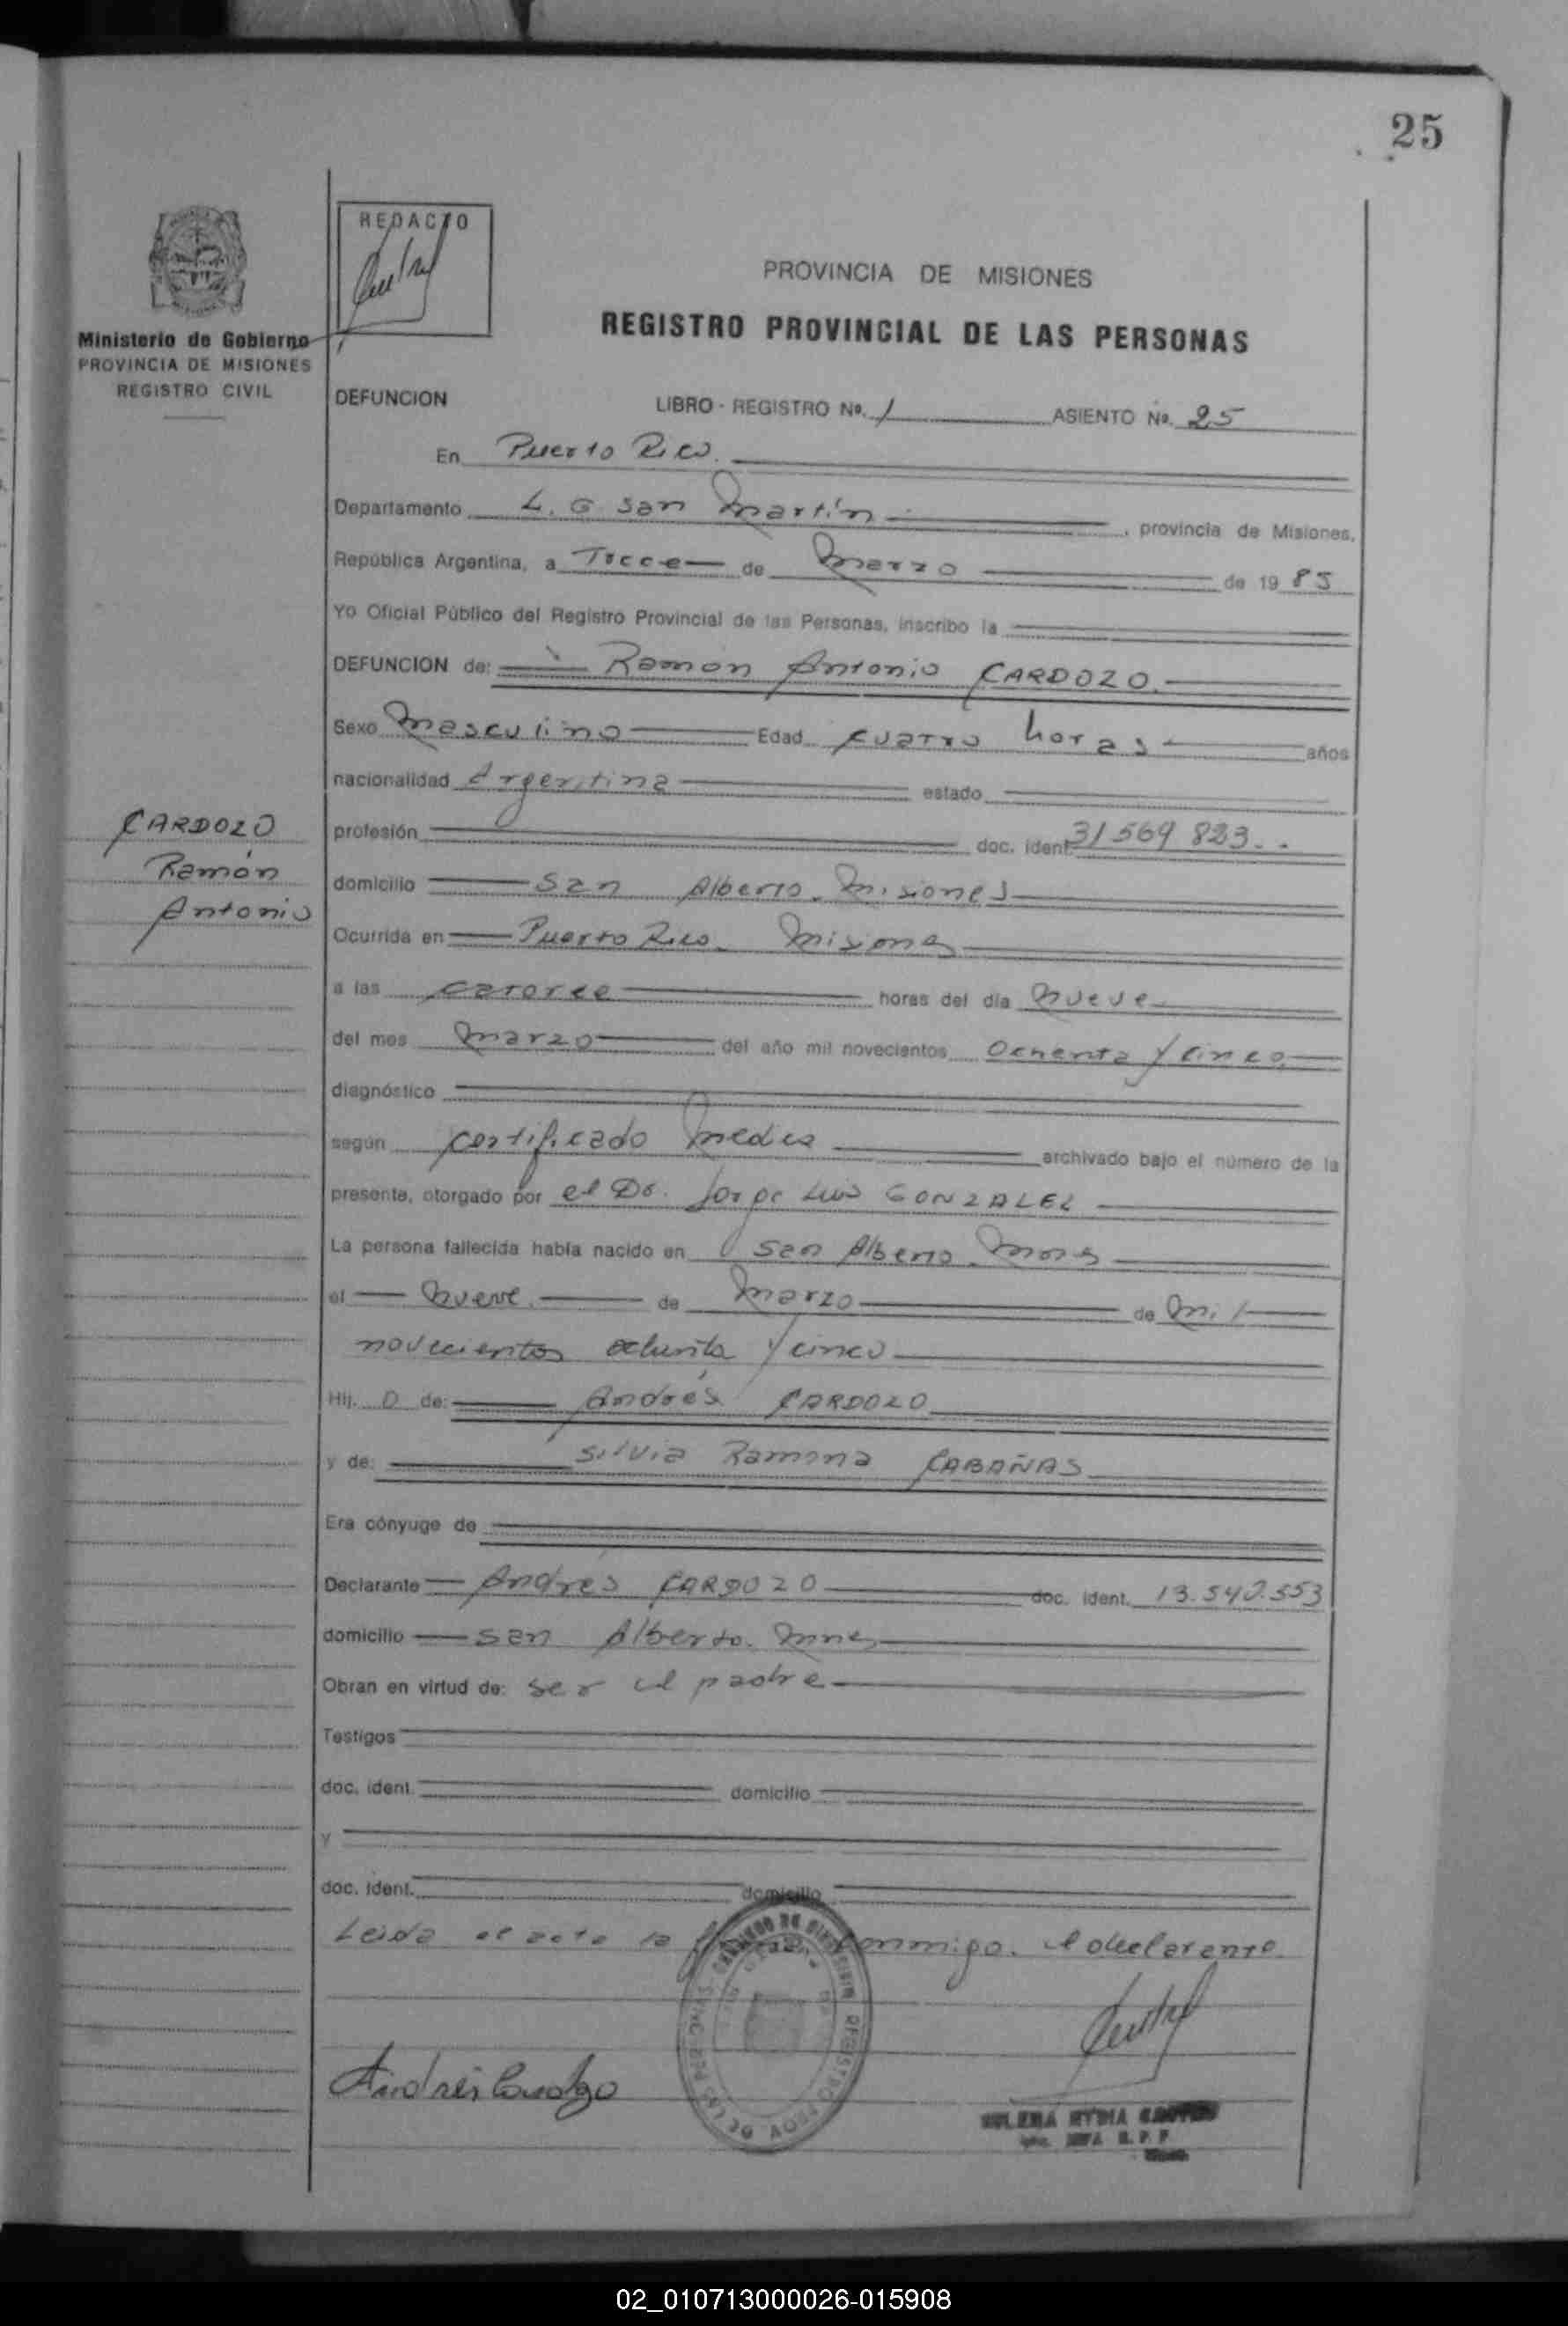 25
REDACTO
PROVINCIA DE MISIONES
REGISTRO PROVINCIAL DE LAS PERSONAS
Ministerio de Gobierno
PROVINCIA DE MISIONES
REGISTRO CIVIL
DEFUNCION LIBRO - REGISTRO Nº. 1 ASIENTO Nº. 25
En Puerto Rico.
Departamento L. G. San Martín , provincia de Misiones,
República Argentina, a Trece de Marzo de 19 85
Yo Oficial Público del Registro Provincial de las Personas, inscribo la
DEFUNCION de: Ramon Antonio CARDOZO.
Sexo Masculino Edad cuatro horas años
nacionalidad Argentina estado
CARDOZO
Ramón
Antonio
profesión doc. ident. 31569 823..
domicilio San Alberto. Misiones
Ocurrida en Puerto Rico. Misiones
a las catorce horas del día Nueve
del mes Marzo del año mil novecientos Ochenta y cinco
diagnóstico
según certificado Medico archivado bajo el número de la
presente, otorgado por el Dr. Jorge Luis GONZALEZ
La persona fallecida había nacido en San Alberto. Mnes
el Nueve de Marzo de Mil
novecientos ochenta y cinco
Hij. o de: Andrés CARDOZO
y de: Silvia Ramona CABAÑAS
Era cónyuge de
Declarante Andrés CARDOZO doc. ident. 13.540.553
domicilio San Alberto. Mnes
Obran en virtud de: ser el padre
Testigos
doc. ident. domicilio
y
doc. ident. domicilio
Leida el acta la firma conmigo. el declarante
Andrés Cardozo
02_010713000026-015908